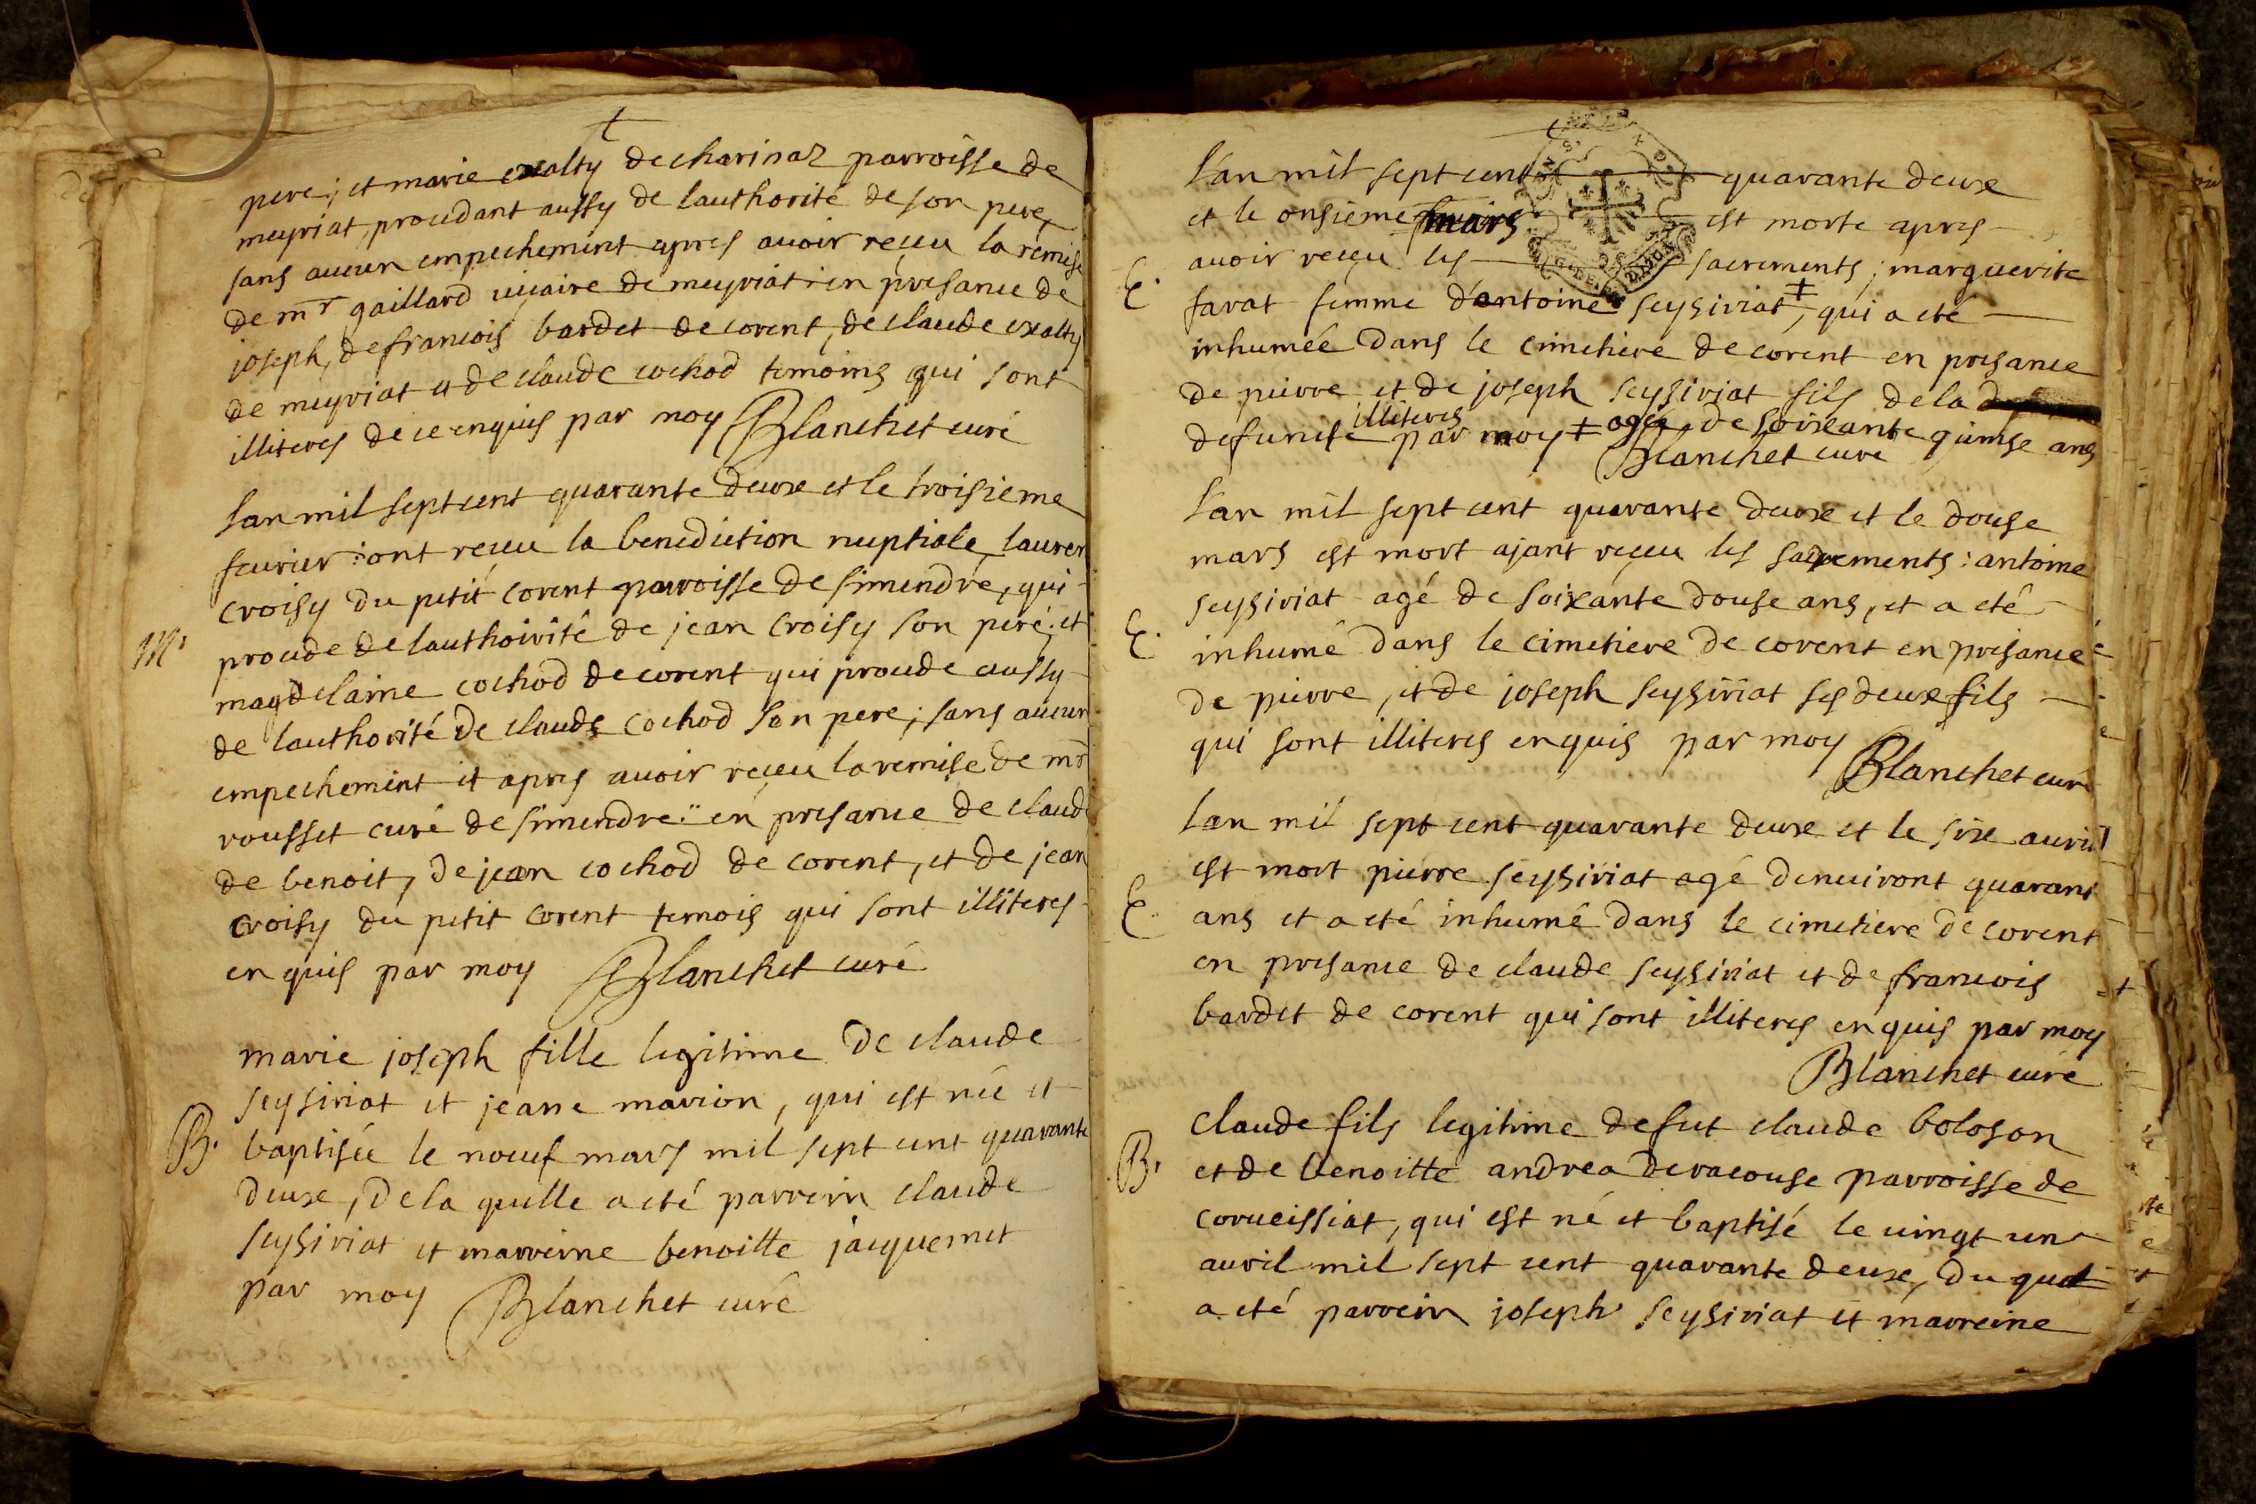 pere; et marie exalty de charinaz parroisse de
meyriat, procedant aussy de lauthorité de son pere,
sans aucun empechement apres auoir reçeu la remise
de mr gaillard uicaire de meyriat: en presance de
joseph, de francois bardet de corent, de claude exalty
de meyriat et de claude cochod temoins qui sont
illiteres de ce enquis par moy Blanchet curé
lan mil sept cent quarante deuxe et le troisieme
feurier: ont reçeu la benediction nuptiale, lauren
croisy du petit corent parroisse de simendre, qui
M. procede de lauthoirité de jean croisy son peré; et
magdelaine cochod de corent qui procede aussy
de lauthorité de claude cochod son pere; sans aucun
empechement et apres auoir reçeu la remise de mr
rousset curé de simendre: en presance de claude
de benoit, de jean cochod de corent, et de jean
croisy du petit corent temois qui sont illiteres
enquis par moy Blanchet curé
marie joseph fille legitime de claude
seysiriat et jeane marion, qui est née et
B. baptisée le noeuf mars mil sept cent quarante
deuxe, de la quelle a eté parrein claude
seysiriat et marreine benoitte jacquemet
par moy Blanchet curé
l'an mil sept cent quarante deuxe
et le onsieme mars est morte apres
E. auoir reçeu les sacrements; marguerite
farat femme d'antoine seysiriat ‡, qui a eté
inhumée dans le cimetiere de corent en presance
de pierre et de joseph seysiriat fils de la
defuncte illiteres par moy ‡ agée de soixante quinse ans
Blanchet curé
l'an mil sept cent quarante deuxe et le douse
mars est mort ajant reçeu les sacrements: antoine
seysiriat agé de soixante douse ans, et a eté
E. inhumé dans le cimetiere de corent en presance
de pierre, et de joseph seysiriat ses deuxe fils
qui sont illiteres enquis par moy
Blanchet curé
lan mil sept cent quarante deuxe et le sixe auril
est mort pierre seysiriat agé denuiront quarant
E. ans et a eté inhumé dans le cimetiere de corent
en presance de claude seysiriat et de francois
bardet de corent qui sont illiteres enquis par moy
Blanchet curé
claude fils legitime de fut claude boloson
B. et de benoitte andrea de racouse parroisse de
corueissiat, qui est né et baptisé le uingt un
auril mil sept cent quarante deuxe, du quel
a eté parrein joseph seysiriat et marreine